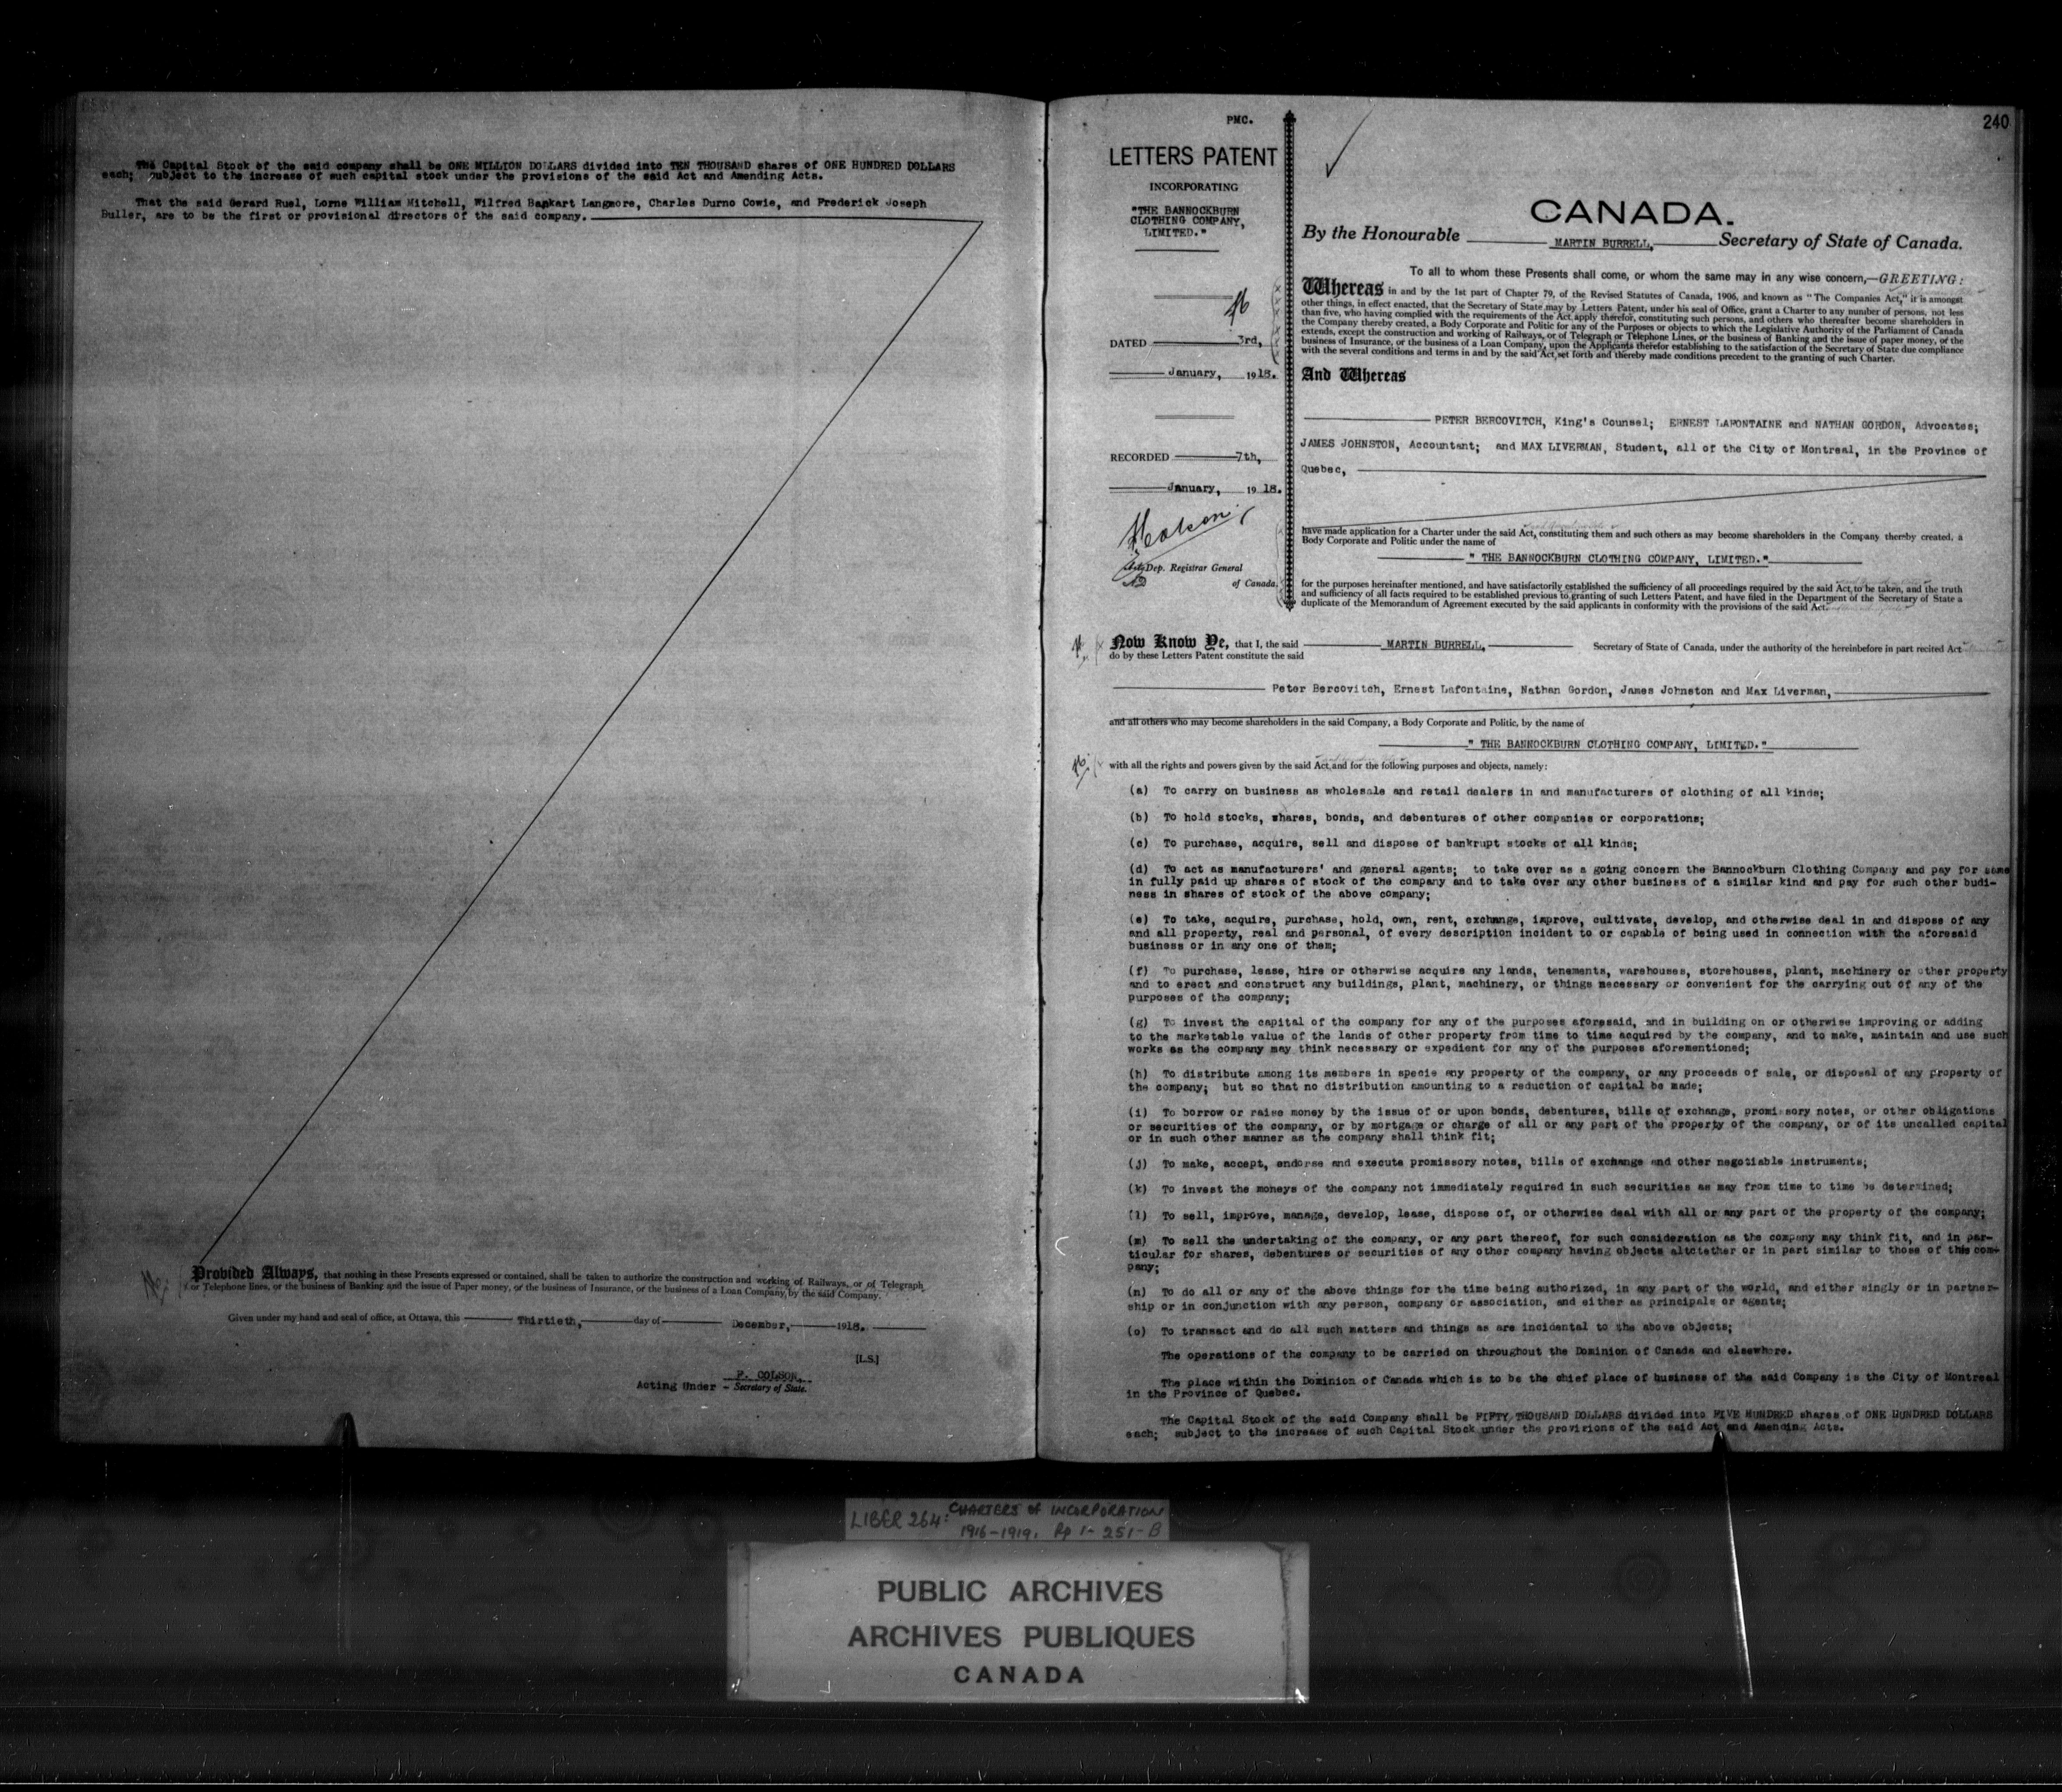 The Capital Stock of the said company shall be ONE MILLION DOLLARS divided into TEN THOUSAND shares of ONE HUNDRED DOLLARS
each; subject to the increase of such capital stock under the provisions of the said Act and Amending Acts.
That the said Gerard Ruel, Lorne William Mitchell, Wilfred Bankart Langmore, Charles Durno Cowie, and Frederick Joseph
Buller, are to be the first or provisional directors of the said company.
Provided Always, that nothing in these Presents expressed or contained, shall be taken to authorize the construction and working of Railways, or of Telegraph
or Telephone lines, or the business of Banking and the issue of Paper money, or the business of Insurance, or the business of a Loan Company, by the said Company.
Given under my hand and seal of office, at Ottawa, this Thirtieth, day of December, 1918.
[L.S.]
P. COLSON,
Acting Under - Secretary of State.
240
PMC.
LETTERS PATENT
INCORPORATING
"THE BANNOCKBURN
CLOTHING COMPANY,
LIMITED."
DATED 3rd,
January, 1918.
RECORDED 7th,
January, 19 18.
PColson
Actg Dep. Registrar General
of Canada.
CANADA.
By the Honourable MARTIN BURRELL, Secretary of State of Canada.
To all to whom these Presents shall come, or whom the same may in any wise concern,—GREETING:
Whereas in and by the 1st part of Chapter 79, of the Revised Statutes of Canada, 1906, and known as "The Companies Act," it is amongst
other things, in effect enacted, that the Secretary of State may by Letters Patent, under his seal of Office, grant a Charter to any number of persons, not less
than five, who having complied with the requirements of the Act apply therefor, constituting such persons, and others who thereafter become shareholders in
the Company thereby created, a Body Corporate and Politic for any of the Purposes or objects to which the Legislative Authority of the Parliament of Canada
extends, except the construction and working of Railways, or of Telegraph or Telephone Lines, or the business of Banking and the issue of paper money, or the
business of Insurance, or the business of a Loan Company, upon the Applicants therefor establishing to the satisfaction of the Secretary of State due compliance
with the several conditions and terms in and by the said Act set forth and thereby made conditions precedent to the granting of such Charter.
And Whereas
PETER BERCOVITCH, King's Counsel; ERNEST LAFONTAINE and NATHAN GORDON, Advocates;
JAMES JOHNSTON, Accountant; and MAX LIVERMAN, Student, all of the City of Montreal, in the Province of
Quebec,
have made application for a Charter under the said Act, constituting them and such others as may become shareholders in the Company thereby created, a
Body Corporate and Politic under the name of
" THE BANNOCKBURN CLOTHING COMPANY, LIMITED."
for the purposes hereinafter mentioned, and have satisfactorily established the sufficiency of all proceedings required by the said Act, to be taken, and the truth
and sufficiency of all facts required to be established previous to granting of such Letters Patent, and have filed in the Department of the Secretary of State a
duplicate of the Memorandum of Agreement executed by the said applicants in conformity with the provisions of the said Act.
Now Know Ye, that I, the said MARTIN BURRELL, Secretary of State of Canada, under the authority of the hereinbefore in part recited Act
do by these Letters Patent constitute the said
Peter Bercovitch, Ernest Lafontaine, Nathan Gordon, James Johnston and Max Liverman,
and all others who may become shareholders in the said Company, a Body Corporate and Politic, by the name of
" THE BANNOCKBURN CLOTHING COMPANY, LIMITED."
with all the rights and powers given by the said Act, and for the following purposes and objects, namely:
(a) To carry on business as wholesale and retail dealers in and manufacturers of clothing of all kinds;
(b) To hold stocks, shares, bonds, and debentures of other companies or corporations;
(c) To purchase, acquire, sell and dispose of bankrupt stocks of all kinds;
(d) To act as manufacturers' and general agents; to take over as a going concern the Bannockburn Clothing Company and pay for same
in fully paid up shares of stock of the company and to take over any other business of a similar kind and pay for such other budi-
ness in shares of stock of the above company;
(e) To take, acquire, purchase, hold, own, rent, exchange, improve, cultivate, develop, and otherwise deal in and dispose of any
and all property, real and personal, of every description incident to or capable of being used in connection with the aforesaid
business or in any one of them;
(f) To purchase, lease, hire or otherwise acquire any lands, tenements, warehouses, storehouses, plant, machinery or other property
and to erect and construct any buildings, plant, machinery, or things necessary or convenient for the carrying out of any of the
purposes of the company;
(g) To invest the capital of the company for any of the purposes aforesaid, and in building on or otherwise improving or adding
to the marketable value of the lands of other property from time to time acquired by the company, and to make, maintain and use such
works as the company may think necessary or expedient for any of the purposes aforementioned;
(h) To distribute among its members in specie any property of the company, or any proceeds of sale, or disposal of any property of
the company; but so that no distribution amounting to a reduction of capital be made;
(i) To borrow or raise money by the issue of or upon bonds, debentures, bills of exchange, promissory notes, or other obligations
or securities of the company, or by mortgage or charge of all or any part of the property of the company, or of its uncalled capital
or in such other manner as the company shall think fit;
(j) To make, accept, endorse and execute promissory notes, bills of exchange and other negotiable instruments;
(k) To invest the moneys of the company not immediately required in such securities as may from time to time be determined;
(l) To sell, improve, manage, develop, lease, dispose of, or otherwise deal with all or any part of the property of the company;
(m) To sell the undertaking of the company, or any part thereof, for such consideration as the company may think fit, and in par-
ticular for shares, debentures or securities of any other company having objects altctether or in part similar to those of this com-
pany;
(n) To do all or any of the above things for the time being authorized, in any part of the world, and either singly or in partner-
ship or in conjunction with any person, company or association, and either as principals or agents;
(o) To transact and do all such matters and things as are incidental to the above objects;
The operations of the company to be carried on throughout the Dominion of Canada and elsewhere.
The place within the Dominion of Canada which is to be the chief place of business of the said Company is the City of Montreal
in the Province of Quebec.
The Capital Stock of the said Company shall be FIFTY THOUSAND DOLLARS divided into FIVE HUNDRED shares of ONE HUNDRED DOLLARS
each; subject to the increase of such Capital Stock under the provisions of the said Act and Amending Acts.
LIBER 264: CHARTERS OF INCORPORATION
1916-1919. Pp 1-251-B
PUBLIC ARCHIVES
ARCHIVES PUBLIQUES
CANADA